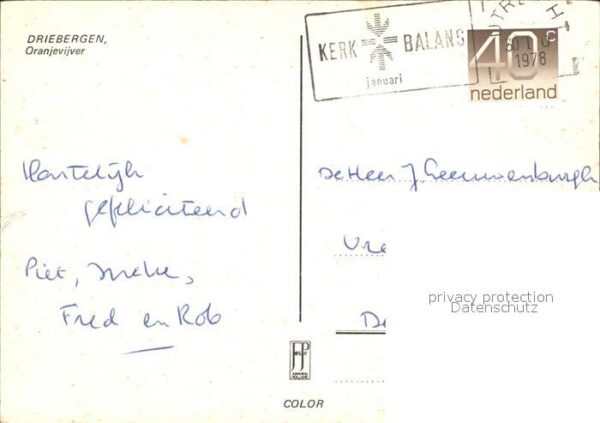 DRIEBERGEN,
Oranjevijver
KERK BALANS
januari
UTRE H
1978
40c
nederland
Hartelijk
gefeliciteerd
Piet, Ineke,
Fred en Rob
De Heer J. Leeuwenburgh
Vre
De
privacy protection
Datenschutz
JosPé
ARNHEM
HOLLAND
COLOR